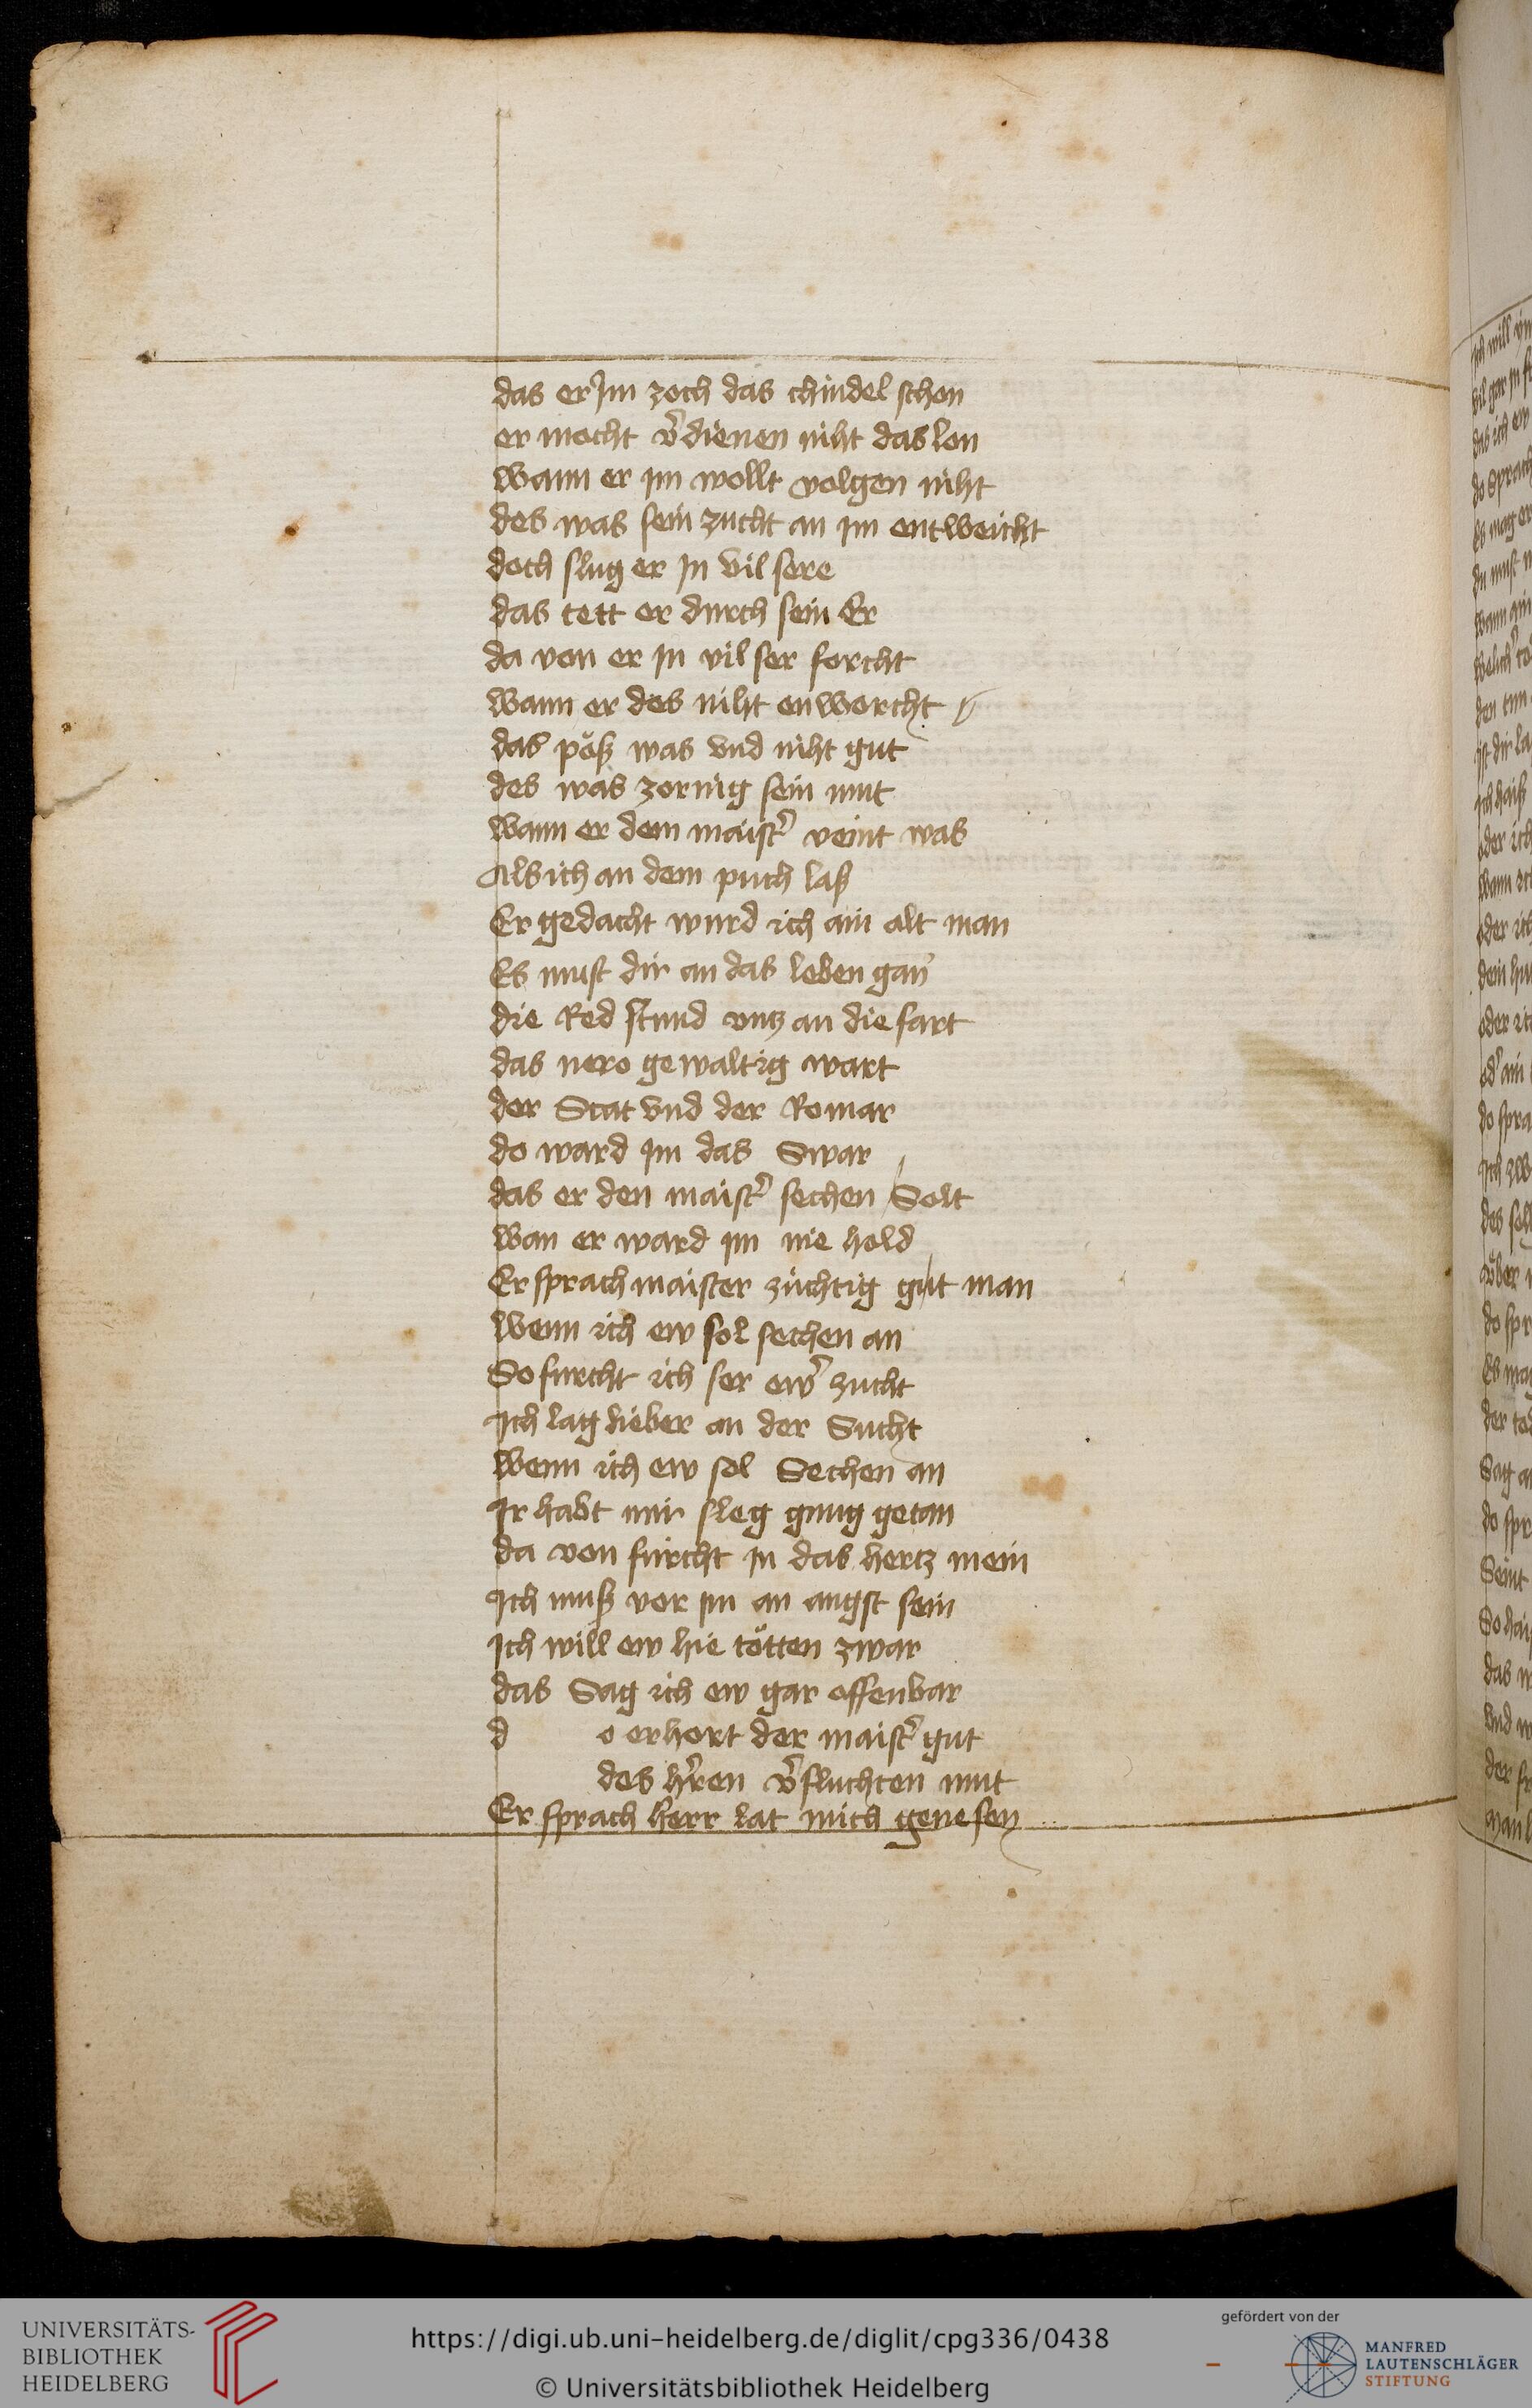 das er Jm zoch das chindel schon
er mocht v̄dienen niht das lon
Wann er jm wollt volgen niht
des was sein zucht an jm entweicht
doch slug er Jn vil sere
das tett er durch sein Er
da von er Jn vil ser forcht
Wann er des niht enworcht
das pöß was vnd niht gut
des was zornig sein mut
Wann er dem maistˀ veint was
Als ich an dem puch laß
Er gedacht wurd ich ain alt man
Es must dir an das leben gan
die Red stund vntz an die fart
das nero gewaltig wart
der Stat vnd der Romar
do ward jm das Swar
das er den maistˀ sechen Solt
Wan er ward jm nie hold
Er sprach maister züchtig gut man
Wenn ich ew sol sechen an
So furcht ich ser ewˀ zucht
Ich lag lieber an der Sucht
Wenn ich ew sol Sechen an
Ir habt mir sleg gnug getan
da von fürcht jn das hertz mein
Ich muß vor jm an angst sein
Ich will ew hie tötten zwar
das Sag ich ew gar offenbar
d o erhort der maistˀ gut
des hˀren v̄fluchten mut
Er sprach herr lat mich genesen
UNIVERSITÄTS-
BIBLIOTHEK
HEIDELBERG
https://digi.ub.uni-heidelberg.de/diglit/cpg336/0438
© Universitätsbibliothek Heidelberg
gefördert von der
MANFRED
LAUTENSCHLÄGER
STIFTUNG